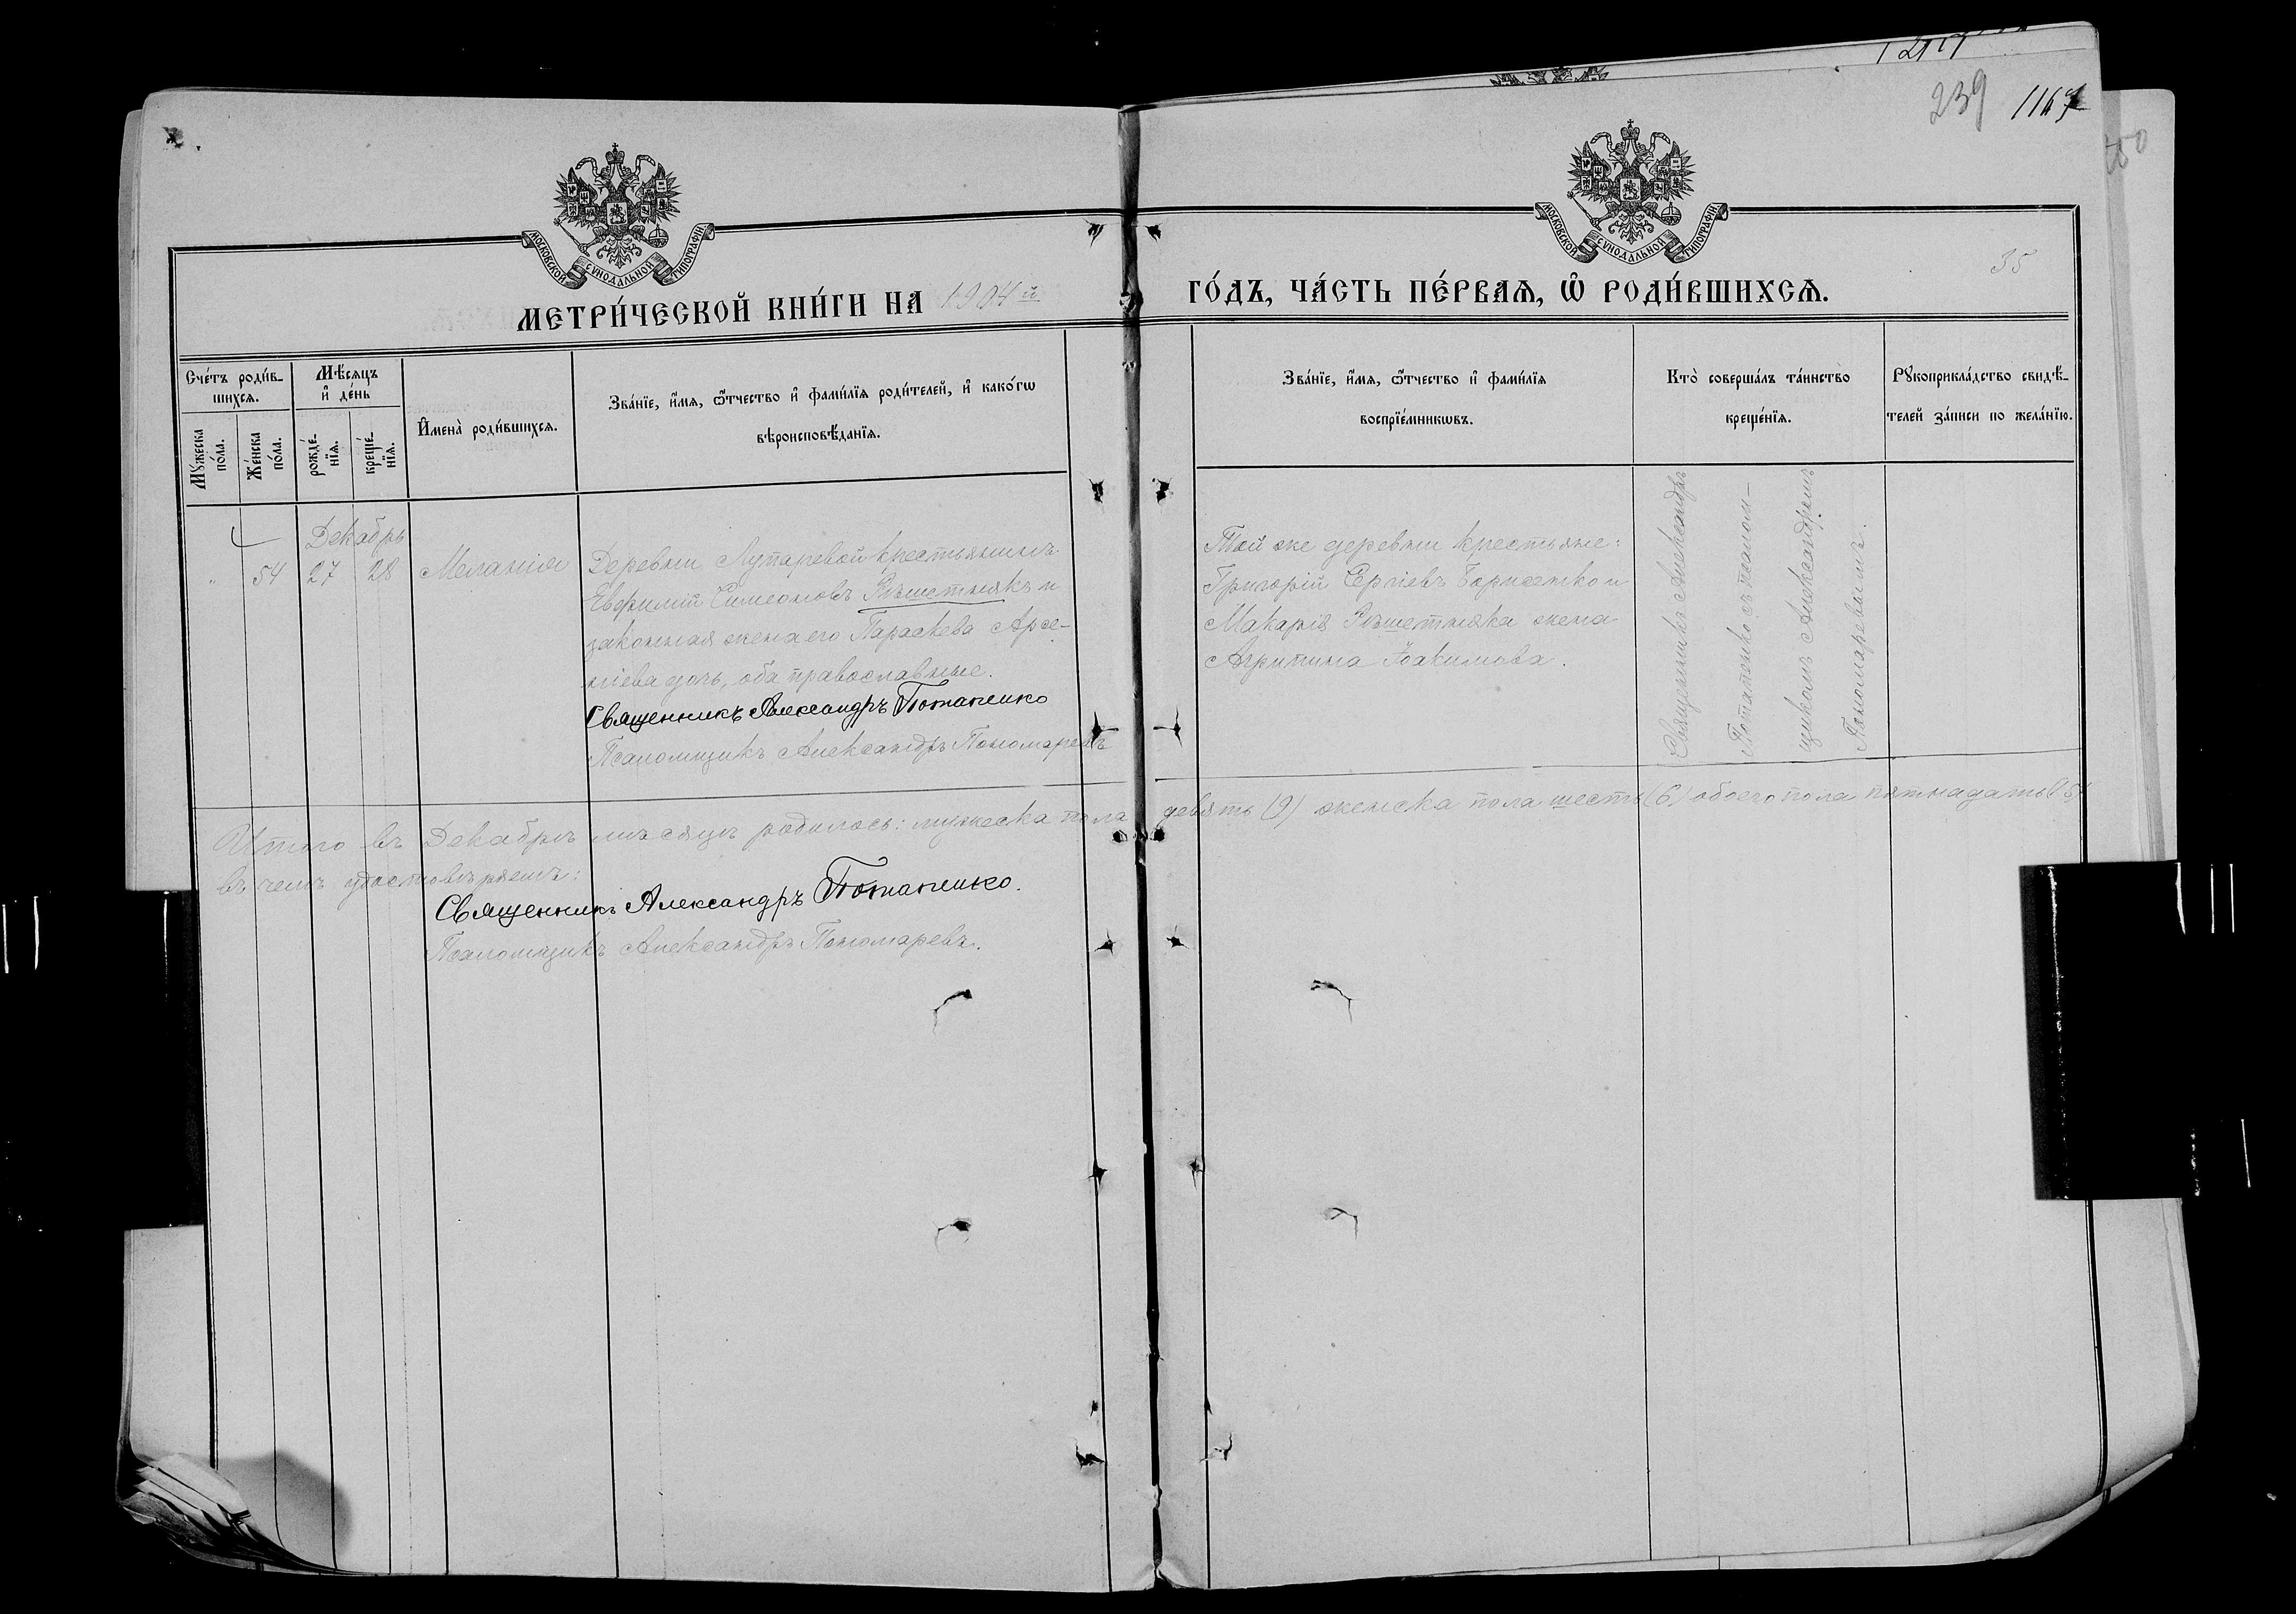 239 1167
МОСКОВСКОЙ СУНОДАЛЬНОЙ ТИПОГРАФІИ
МОСКОВСКОЙ СУНОДАЛЬНОЙ ТИПОГРАФІИ
35
МЕТРИ́ЧЕСКОЙ КНИ́ГИ НА 1904й ГО́ДЪ, ЧА́СТЬ ПЕ́РВАѦ, Ѡ҃ РОДИ́ВШИХСѦ.
Сче́тъ роди́в-
шихсѧ.
Мꙋжеска
по́ла.
Же́нска
по́ла.
Мѣ́сѧцъ
и҆ де́нь
рожде́-
нїѧ.
креще́-
нїѧ.
И҆мена̀ роди́вшихсѧ.
Зва́нїе, и҆́мѧ, ѻ҆́тчество и҆ фами́лїѧ роди́телей, и҆ како́гѡ
вѣроисповѣ́данїѧ.
Зва́нїе, и҆́мѧ, ѻ҆́тчество и҆ фами́лїѧ
воспрїе́мникѡвъ.
Кто̀ соверша́лъ та́инство
креще́нїѧ.
Рꙋкоприкла́дство свидѣ́-
телей за́писи по жела́нїю.
Декабрь
" 54 27 28 Меланія
Деревни Лутаревой крестьянинъ
Евфимій Симеоновъ Рѣшетнякъ и
законная жена его Параскева Арсе-
нiева дочь, оба православные.
Священникъ Александръ Потапенко
Псаломщикъ Александръ Пономаревъ
Той же деревни крестьяне:
Григорій Сергіевъ Борисенко и
Макарія Рѣшетняка жена
Агрипина Іоакимова.
Священникъ Александръ
Потапенко съ псалом-
щикомъ Александромъ
Пономаревымъ.
Итого въ Декабрѣ мѣсяцѣ родилось: мужеска пола девять (9) женска пола шесть (6) обоего пола пятнадцать (15)
въ чемъ удостовѣряемъ:
Священникъ Александръ Потапенко.
Псаломщикъ Александръ Пономаревъ.